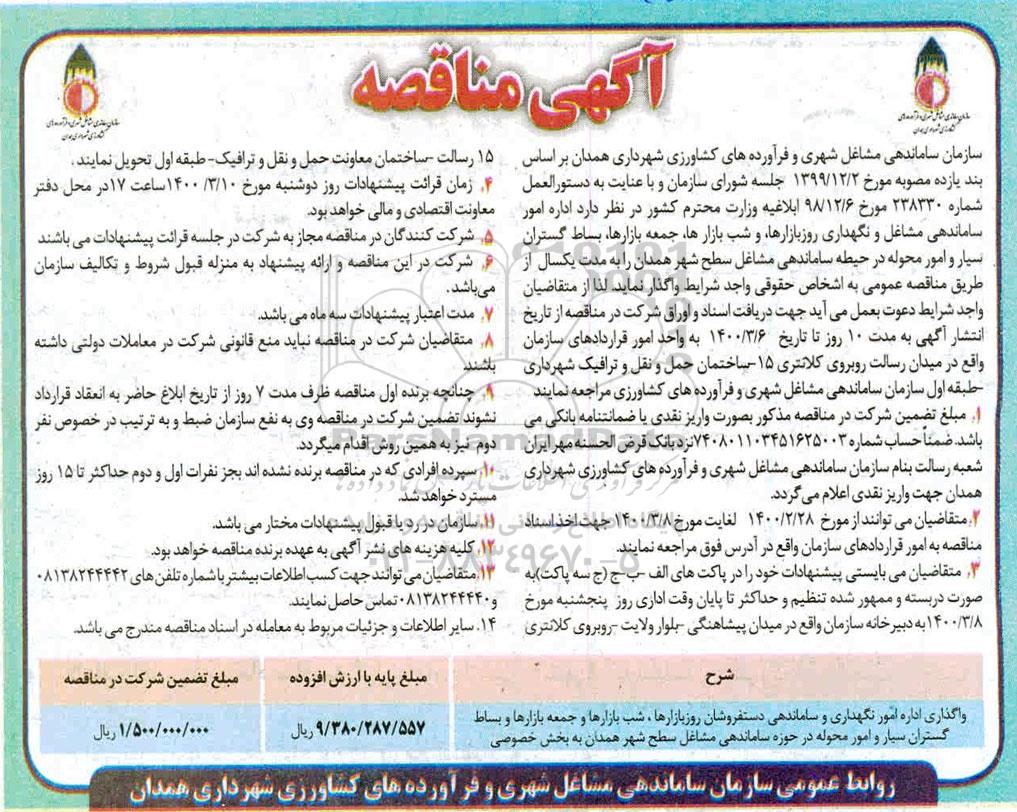 آگهی مناقصه
سازمان ساماندهی مشاغل شهری و فرآورده های کشاورزی شهرداری همدان بر اساس
بند یازده مصوبه مورخ ۱۳۹۹/۱۲/۲ جلسه شورای سازمان و با عنایت به دستورالعمل
شماره ۲۳۸۳۳۰ مورخ ۹۸/۱۲/۶ ابلاغیه وزارت محترم کشور در نظر دارد اداره امور
ساماندهی مشاغل و نگهداری روزبازارها، و شب بازار ها، جمعه بازارها، بساط گستران
سیار و امور محوله در حیطه ساماندهی مشاغل سطح شهر همدان را به مدت یکسال از
طریق مناقصه عمومی به اشخاص حقوقی واجد شرایط واگذار نماید. لذا از متقاضیان
واجد شرایط دعوت بعمل می آید جهت دریافت اسناد و اوراق شرکت در مناقصه از تاریخ
انتشار آگهی به مدت ۱۰ روز تا تاریخ ۱۴۰۰/۳/۶ به واحد امور قراردادهای سازمان
واقع در میدان رسالت روبروی کلانتری ۱۵-ساختمان حمل و نقل و ترافیک شهرداری
-طبقه اول سازمان ساماندهی مشاغل شهری و فرآورده های کشاورزی مراجعه نمایند
۱. مبلغ تضمین شرکت در مناقصه مذکور بصورت واریز نقدی یا ضمانتنامه بانکی می
باشد. ضمناً حساب شماره ۷۴۰۸۰۱۱۰۳۴۵۱۶۲۵۰۰۳ نزد بانک قرض الحسنه مهر ایران
شعبه رسالت بنام سازمان ساماندهی مشاغل شهری و فرآورده های کشاورزی شهرداری
همدان جهت واریز نقدی اعلام می گردد.
۲. متقاضیان می توانند از مورخ ۱۴۰۰/۲/۲۸ لغایت مورخ ۱۴۰۰/۳/۸ جهت اخذ اسناد
مناقصه به امور قراردادهای سازمان واقع در آدرس فوق مراجعه نمایند.
۳. متقاضیان می بایستی پیشنهادات خود را در پاکت های الف -ب-ج (ج سه پاکت)به
صورت دربسته و ممهور شده تنظیم و حداکثر تا پایان وقت اداری روز پنجشنبه مورخ
۱۴۰۰/۳/۸ به دبیرخانه سازمان واقع در میدان پیشاهنگی -بلوار ولایت -روبروی کلانتری
۱۵ رسالت -ساختمان معاونت حمل و نقل و ترافیک- طبقه اول تحویل نمایند.
۴. زمان قرائت پیشنهادات روز دوشنبه مورخ ۱۴۰۰/۳/۱۰ ساعت ۱۷ در محل دفتر
معاونت اقتصادی و مالی خواهد بود.
۵. شرکت کنندگان در مناقصه مجاز به شرکت در جلسه قرائت پیشنهادات می باشند
۶. شرکت در این مناقصه و ارائه پیشنهاد به منزله قبول شروط و تکالیف سازمان
می باشد.
۷. مدت اعتبار پیشنهادات سه ماه می باشد.
۸. متقاضیان شرکت در مناقصه نباید منع قانونی شرکت در معاملات دولتی داشته
باشند.
۹. چنانچه برنده اول مناقصه ظرف مدت ۷ روز از تاریخ ابلاغ حاضر به انعقاد قرارداد
نشوند تضمین شرکت در مناقصه وی به نفع سازمان ضبط و به ترتیب در خصوص نفر
دوم نیز به همین روش اقدام میگردد.
۱۰. سپرده افرادی که در مناقصه برنده نشده اند بجز نفرات اول و دوم حداکثر تا ۱۵ روز
مسترد خواهد شد.
۱۱. سازمان در رد یا قبول پیشنهادات مختار می باشد.
۱۲. کلیه هزینه های نشر آگهی به عهده برنده مناقصه خواهد بود.
۱۳. متقاضیان می توانند جهت کسب اطلاعات بیشتر با شماره تلفن های ۰۸۱۳۸۲۴۴۴۴۲
و ۰۸۱۳۸۲۴۴۴۴۰ تماس حاصل نمایند.
۱۴. سایر اطلاعات و جزئیات مربوط به معامله در اسناد مناقصه مندرج می باشد.
شرح مبلغ پایه با ارزش افزوده مبلغ تضمین شرکت در مناقصه
واگذاری اداره امور نگهداری و ساماندهی دستفروشان روزبازارها ، شب بازارها و جمعه بازارها و بساط
گستران سیار و امور محوله در حوزه ساماندهی مشاغل سطح شهر همدان به بخش خصوصی
۹/۳۸۰/۲۸۷/۵۵۷ ریال ۱/۵۰۰/۰۰۰/۰۰۰ ریال
روابط عمومی سازمان ساماندهی مشاغل شهری و فر آورده های کشاورزی شهرداری همدان
ParsNamadData
۰۲۱-۸۸۳۴۹۶۷۰-۵